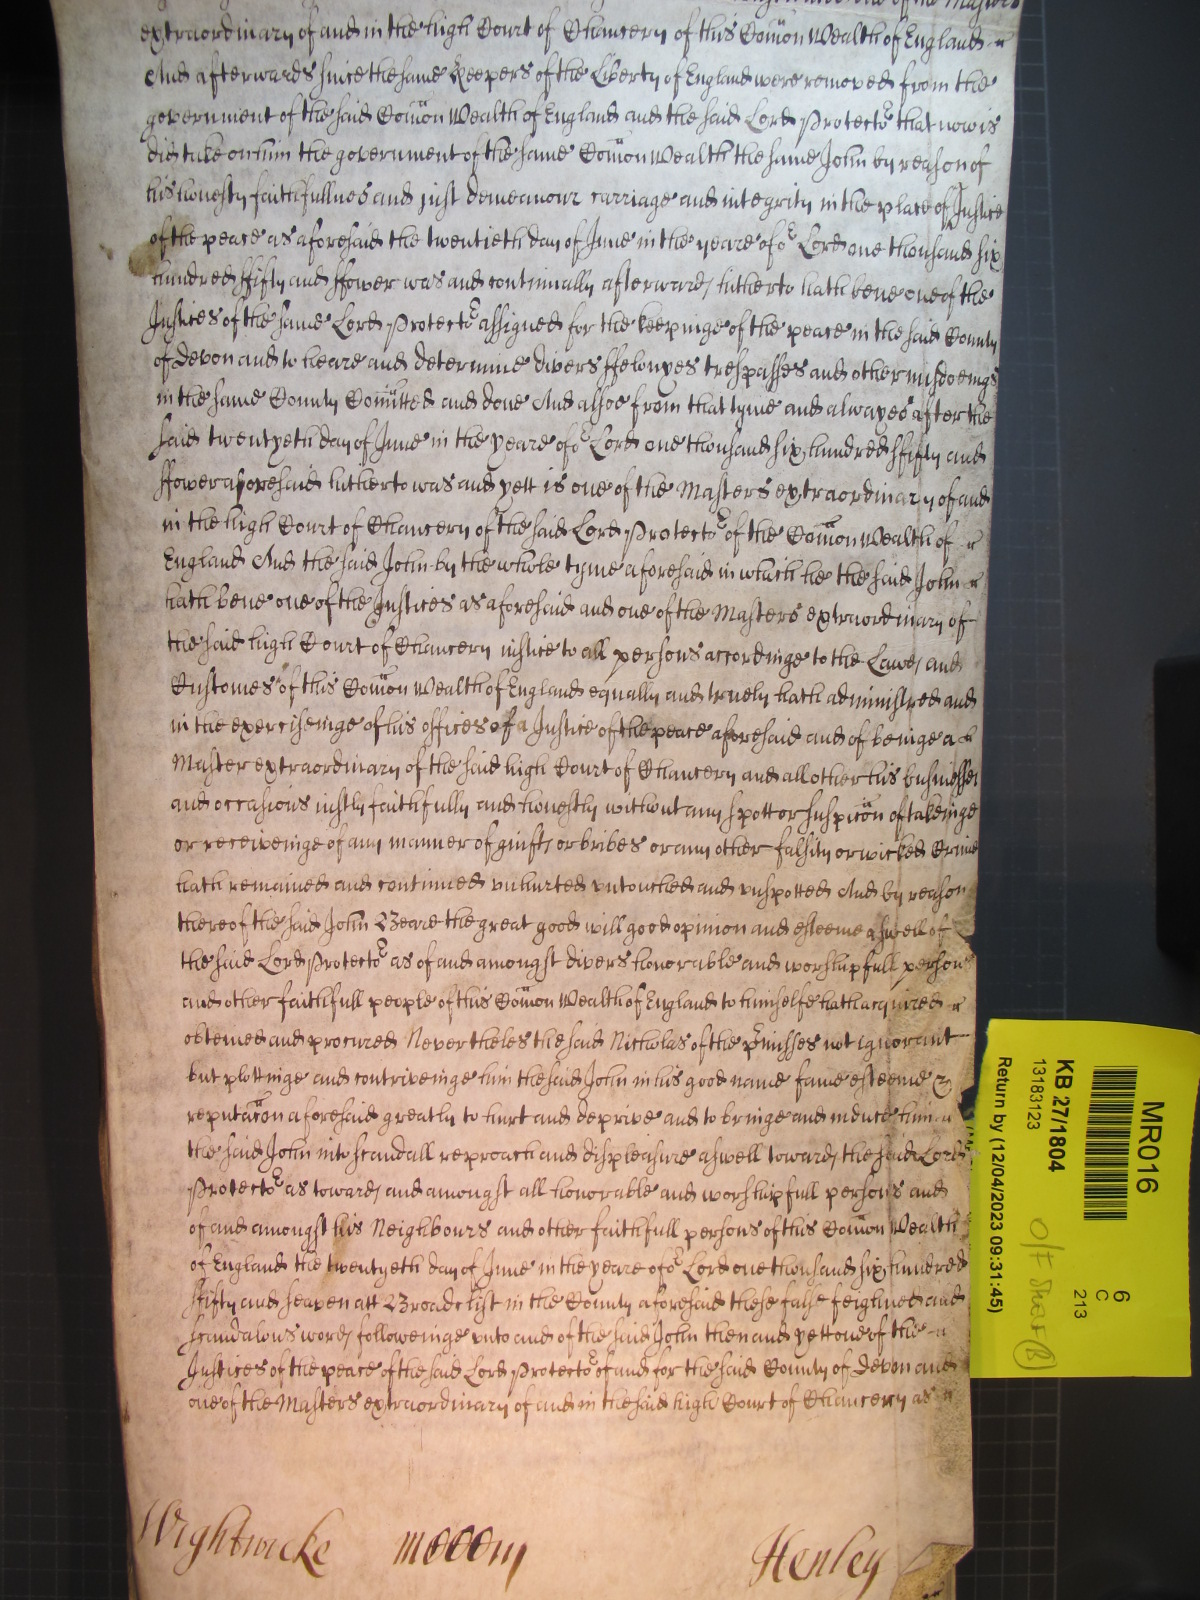 one of the Masters
extraordinary of and in the high Court of Chancery of this Com̃on Wealth of England
And afterwards since the same Keepers of the Liberty of England were removed from the
government of the said Com̃on Wealth of England and the said Lord Protectoʳ that now is
did take on him the government of the same Com̃on Wealth the same John by reason of
his honesty faithfullnes and just demeanour carriage and integrity in the place of Justice
of the peace as aforesaid the twentieth day of June in the yeare of oʳ Lord one thousand six
hundred ffifty and ffower was and continually afterwards hitherto hath bene one of the
Justices of the same Lord Protectoʳ assigned for the keepinge of the peace in the said County
of Devon and to heare and determine divers ffelonyes trespasses and other misdoeings
in the same County Com̃itted and done And alsoe from that tyme and alwayes after the
said twentyeth day of June in the yeare of oʳ Lord one thousand six hundred ffifty and
ffower aforesaid hitherto was and yett is one of the Masters extraordinary of and
in the high Court of Chancery of the said Lord Protectoʳ of the Com̃on Wealth of
England And the said John by the whole tyme aforesaid in which he the said John
hath bene one of the Justices as aforesaid and one of the Masters extraordinary of
the said high Court of Chancery iustice to all persons accordinge to the Lawes and
Customes of this Com̃on Wealth of England equally and truely hath administred and
in the exerciseinge of his offices of a Justice of the peace aforesaid and of beinge a
Master extraordinary of the said high Court of Chancery and all other his businesses
and occasions iustly faithfully and honestly without any spott or suspic̃on of takeinge
or receiveinge of any manner of guifts or bribes or any other falsity or wicked Crime
hath remained and continued vnhurted vntouched and vnspotted And by reason
thereof the said John Beare the great good will good opinion and esteeme aswell of
the said Lord Protectoʳ as of and amongst divers honorable and worshipfull persons
and other faithfull people of this Com̃on Wealth of England to himselfe hath acquired
obteined and procured Nevertheles the said Nicholas of the p̃misses not ignorant
but plottinge and contriveinge him the said John in his good name fame esteeme &
reputac̃on aforesaid greatly to hurt and deprive and to bringe and induce him
the said John into scandall reproach and displeasure aswell towards the said Lord
Protectoʳ as towards and amongst all honorable and worshipfull persons and
of and amongst his Neighbours and other faithfull persons of this Com̃on Wealth
of England the twentyeth day of June in the yeare of oʳ Lord one thousand six hundred
ffifty and seaven att Broadclist in the County aforesaid these false feighned and
scandalous words followeinge vnto and of the said John then and yett one of the
Justices of the peace of the said Lord Protectoʳ of and for the said County of Devon and
one of the Masters extraordinary of and in the said high Court of Chancery as
Wightwicke Henley
MR016
6
C
213
KB 27/1804
13183123
Return by (12/04/2023 09:31:45)